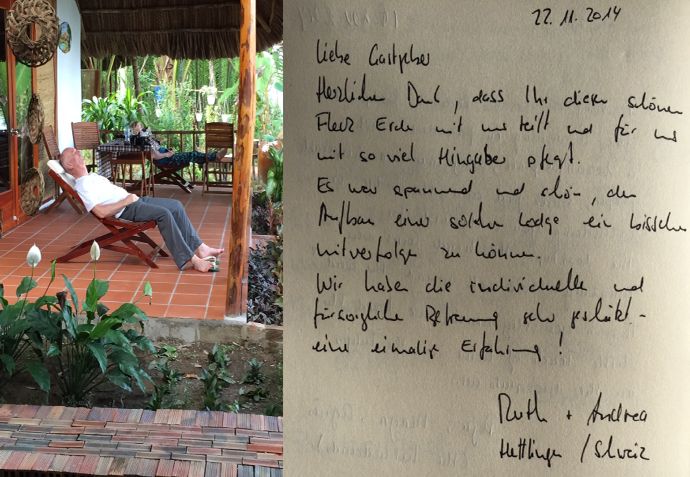 22.11.2014
Liebe Gastgeber
Herzlichen Dank, dass Ihr diesen schönen
Fleck Erde mit uns teilt und für uns
mit so viel Hingabe pflegt.
Es war spannend und schön, den
Aufbau einer solchen Lodge ein bisschen
mitverfolgen zu können.
Wir haben die individuelle und
fürsorgliche Betreuung sehr geschätzt -
eine einmalige Erfahrung!
Ruth + Andrea
Hettlingen / Schweiz